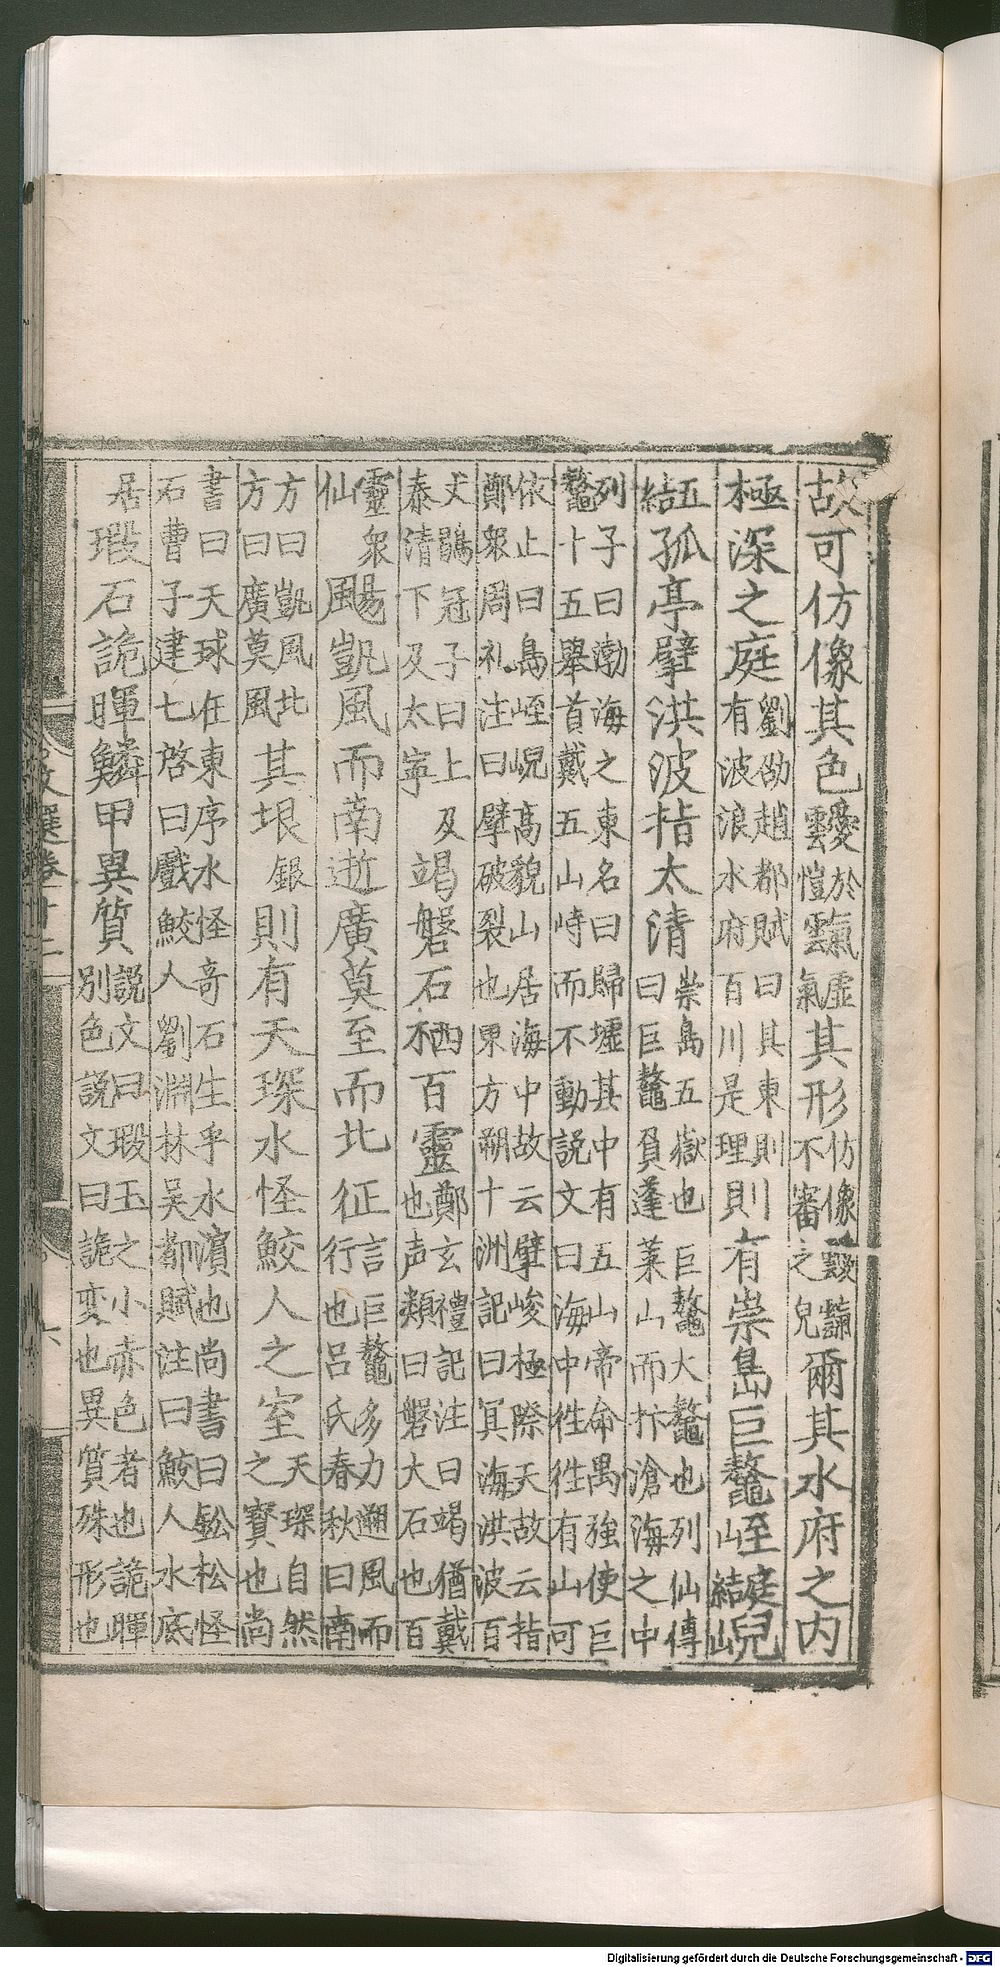 故可仿像其色靉於愷靅氣虛雲氣其形仿像不審之皃靉靅爾其水府之内
極深之庭劉劭趙都賦曰其東則有波浪水府百川是理則有崇島巨鼇峌庭結山山崼
五結孤亭擘洪波指太清崇島五嶽也巨鼇大鼇也列仙傳曰巨鼇負蓬萊山而抃滄海之中
列子曰渤海之東名曰歸墟其中有五山帝命禺強使巨鼇十五舉首戴五山峙而不動說文曰海中往往有山可
依止曰島峌崼高貌山居海中故云擘峻極際天故云指鄭衆周礼注曰擘破裂也東方朔十洲記曰冥海洪波百
丈鶡冠子曰上及泰清下及太寧竭磐石栖百靈鄭玄禮記注曰竭猶戴也声類曰磐大石也百
靈衆仙颺凱風而南逝廣莫至而北征言巨鼇多力遡風而行也呂氏春秋曰南
方曰凱風北方曰廣莫風其垠銀則有天琛水怪鮫人之室天琛自然之寳也尚
書曰天球在東序水怪奇石生乎水濵也尚書曰鈆松怪石曹子建七啓曰戲鮫人劉淵林吴都賦注曰鮫人水底
居瑕石詭暉鱗甲異質說文曰瑕玉之小赤色者也詭暉別色說文曰詭变也異質殊形也
文選卷十二
六
Digitalisierung gefördert durch die Deutsche Forschungsgemeinschaft - DFG